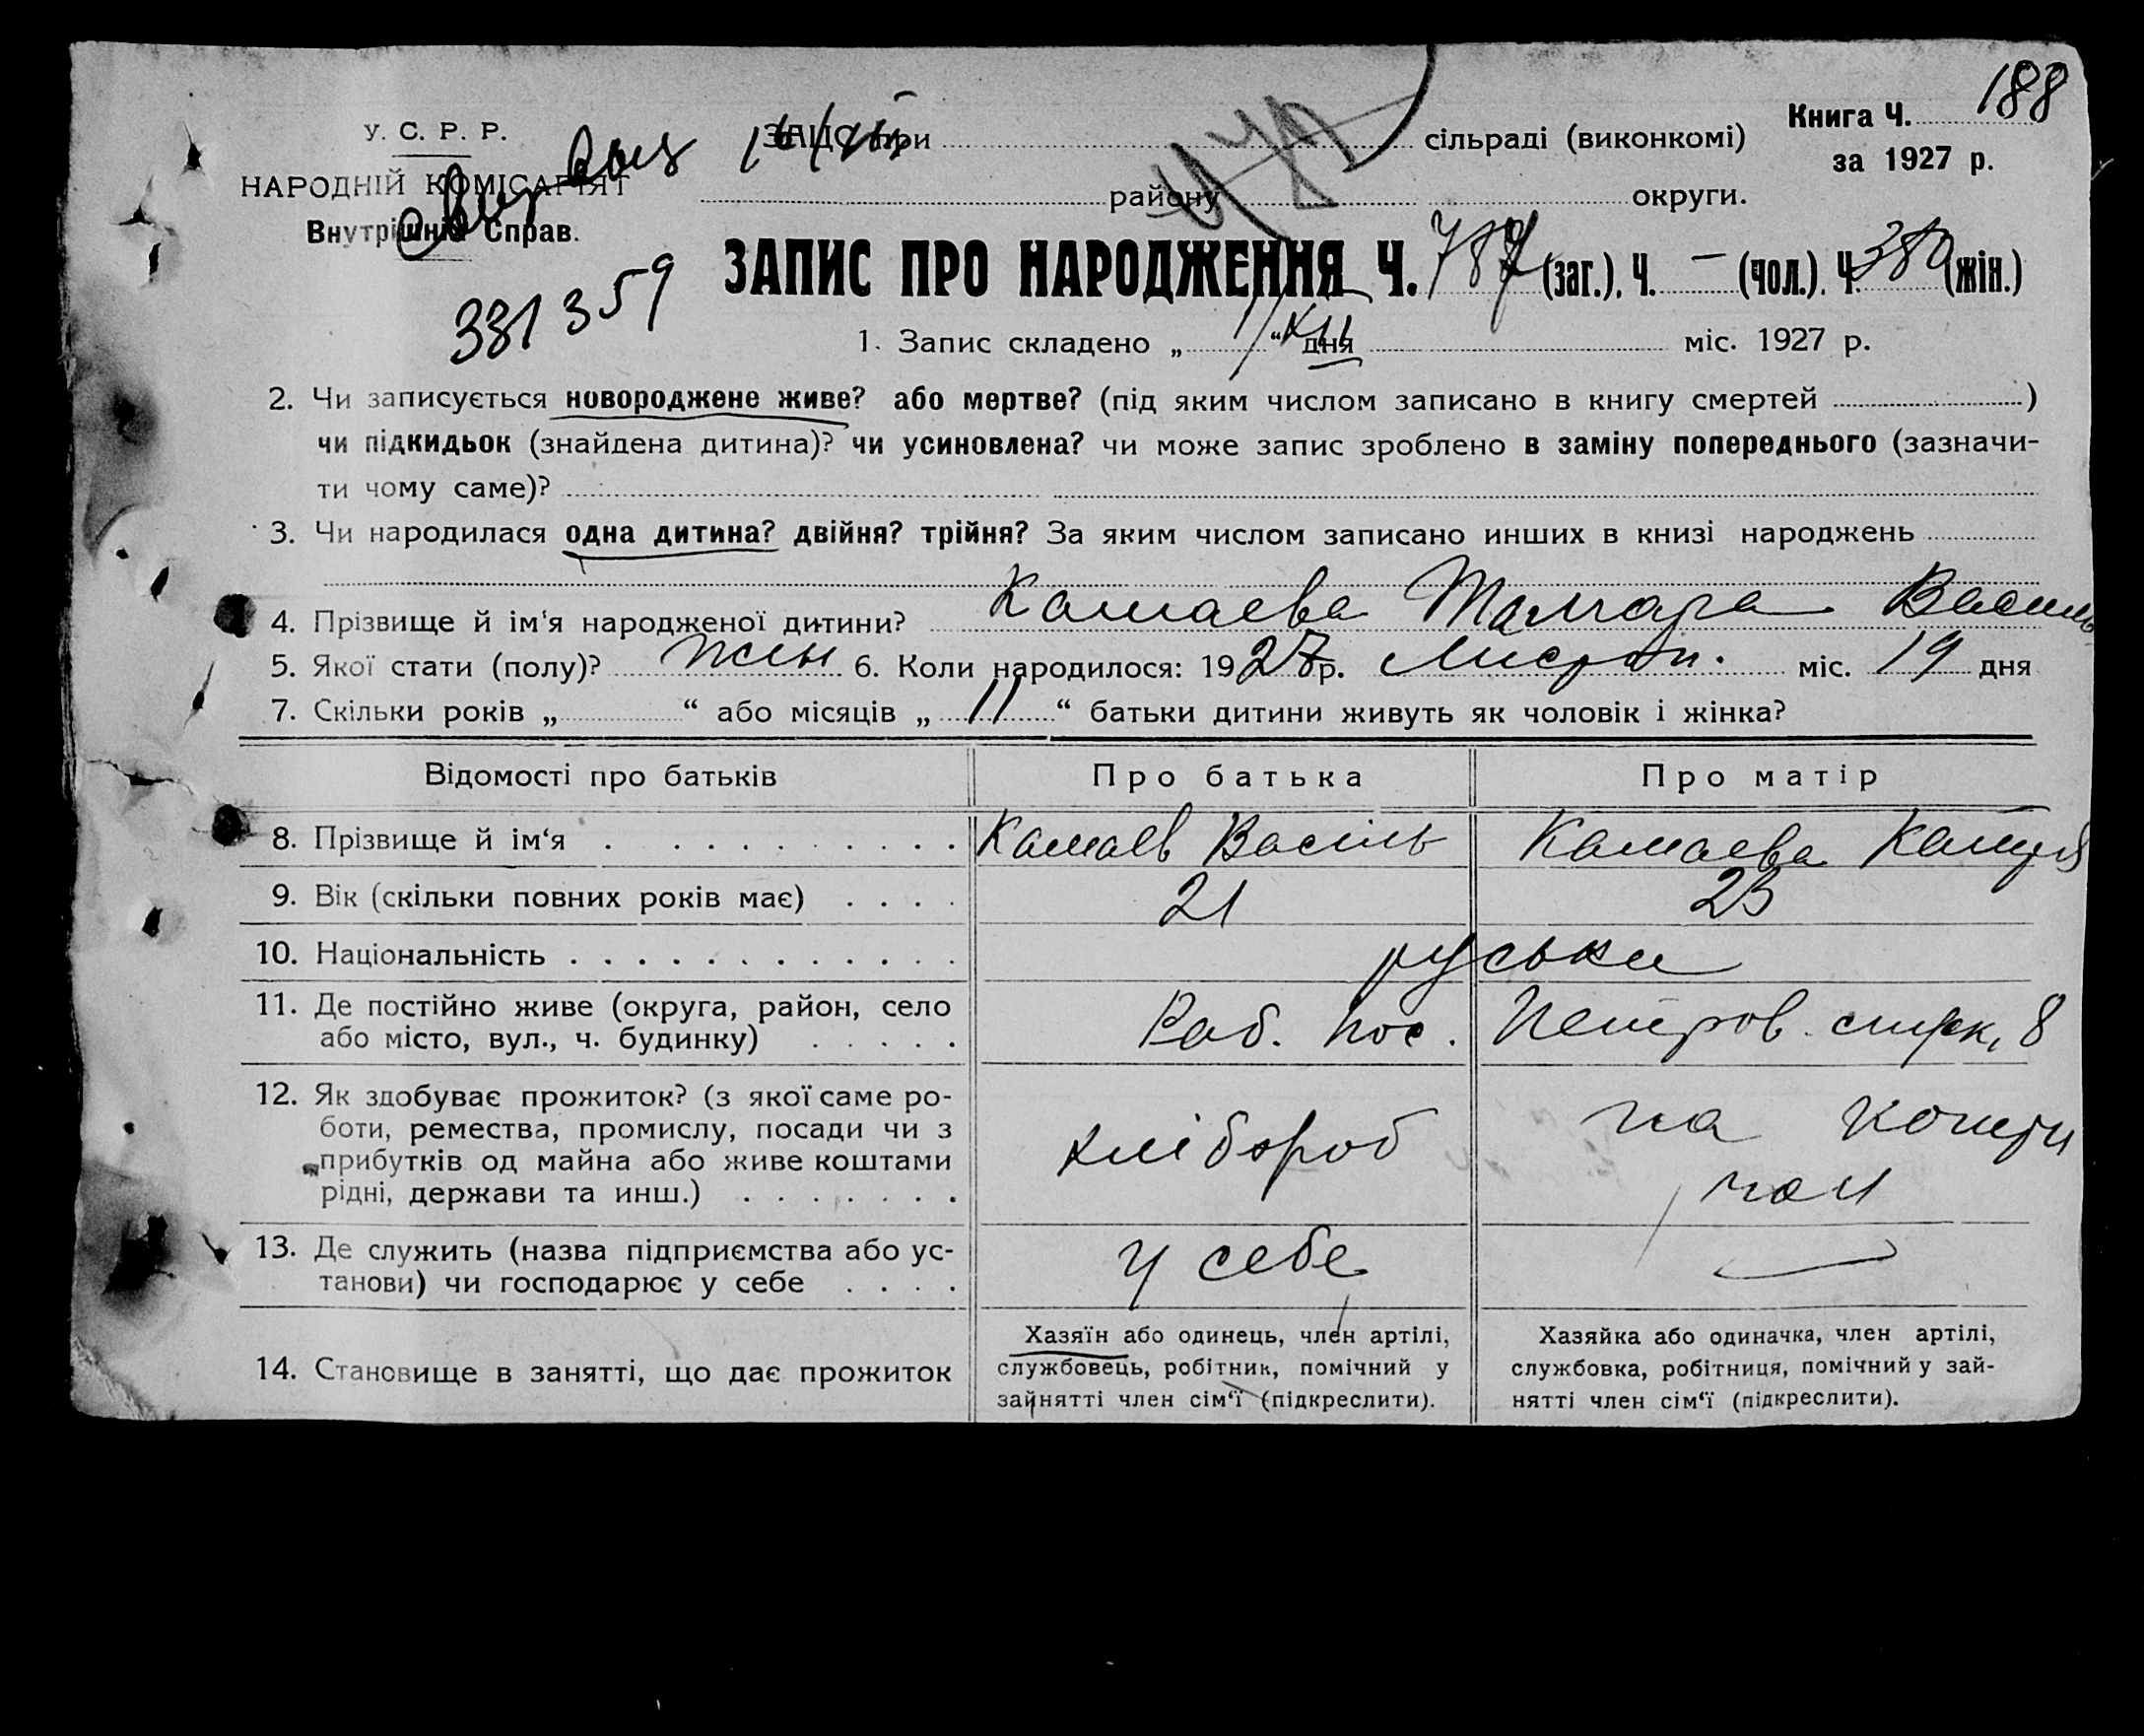 188
У. С. Р. Р.
НАРОДНІЙ КОМІСАРІЯТ
Внутрішніх Справ.
ЗАЦС при сільраді (виконкомі)
району округи.
Книга Ч.
за 1927 р.
331 359
ЗАПИС ПРО НАРОДЖЕННЯ Ч. 787 (заг.). Ч. — (чол.). Ч. 380 (жін.)
1. Запис складено „ “ дня міс. 1927 р.
2. Чи записується новороджене живе? або мертве? (під яким числом записано в книгу смертей )
чи підкидьок (знайдена дитина)? чи усиновлена? чи може запис зроблено в заміну попереднього (зазначи-
ти чому саме)?
3. Чи народилася одна дитина? двійня? трійня? За яким числом записано инших в книзі народжень
4. Прізвище й ім‘я народженої дитини? Камаева Тамара Василь
5. Якої стати (полу)? жін 6. Коли народилося: 1927 р. Листоп. міс. 19 дня
7. Скільки років „ “ або місяців „ 11 “ батьки дитини живуть як чоловік і жінка?
Відомості про батьків Про батька Про матір
8. Прізвище й ім‘я Камаев Василь Камаева
9. Вік (скільки повних років має) 21 23
10. Національність руськи
11. Де постійно живе (округа, район, село
або місто, вул., ч. будинку)
Раб. пос. Петров. 8
12. Як здобуває прожиток? (з якої саме ро-
боти, ремества, промислу, посади чи з
прибутків од майна або живе коштами
рідні, держави та инш.)
хлібороб
на кошти
чол
13. Де служить (назва підприємства або ус-
танови) чи господарює у себе
у себе —
14. Становище в занятті, що дає прожиток
Хазяїн або одинець, член артілі,
службовець, робітник, помічний у
зайнятті член сім‘ї (підкреслити).
Хазяйка або одиначка, член артілі,
службовка, робітниця, помічний у зай-
нятті член сім‘ї (підкреслити).